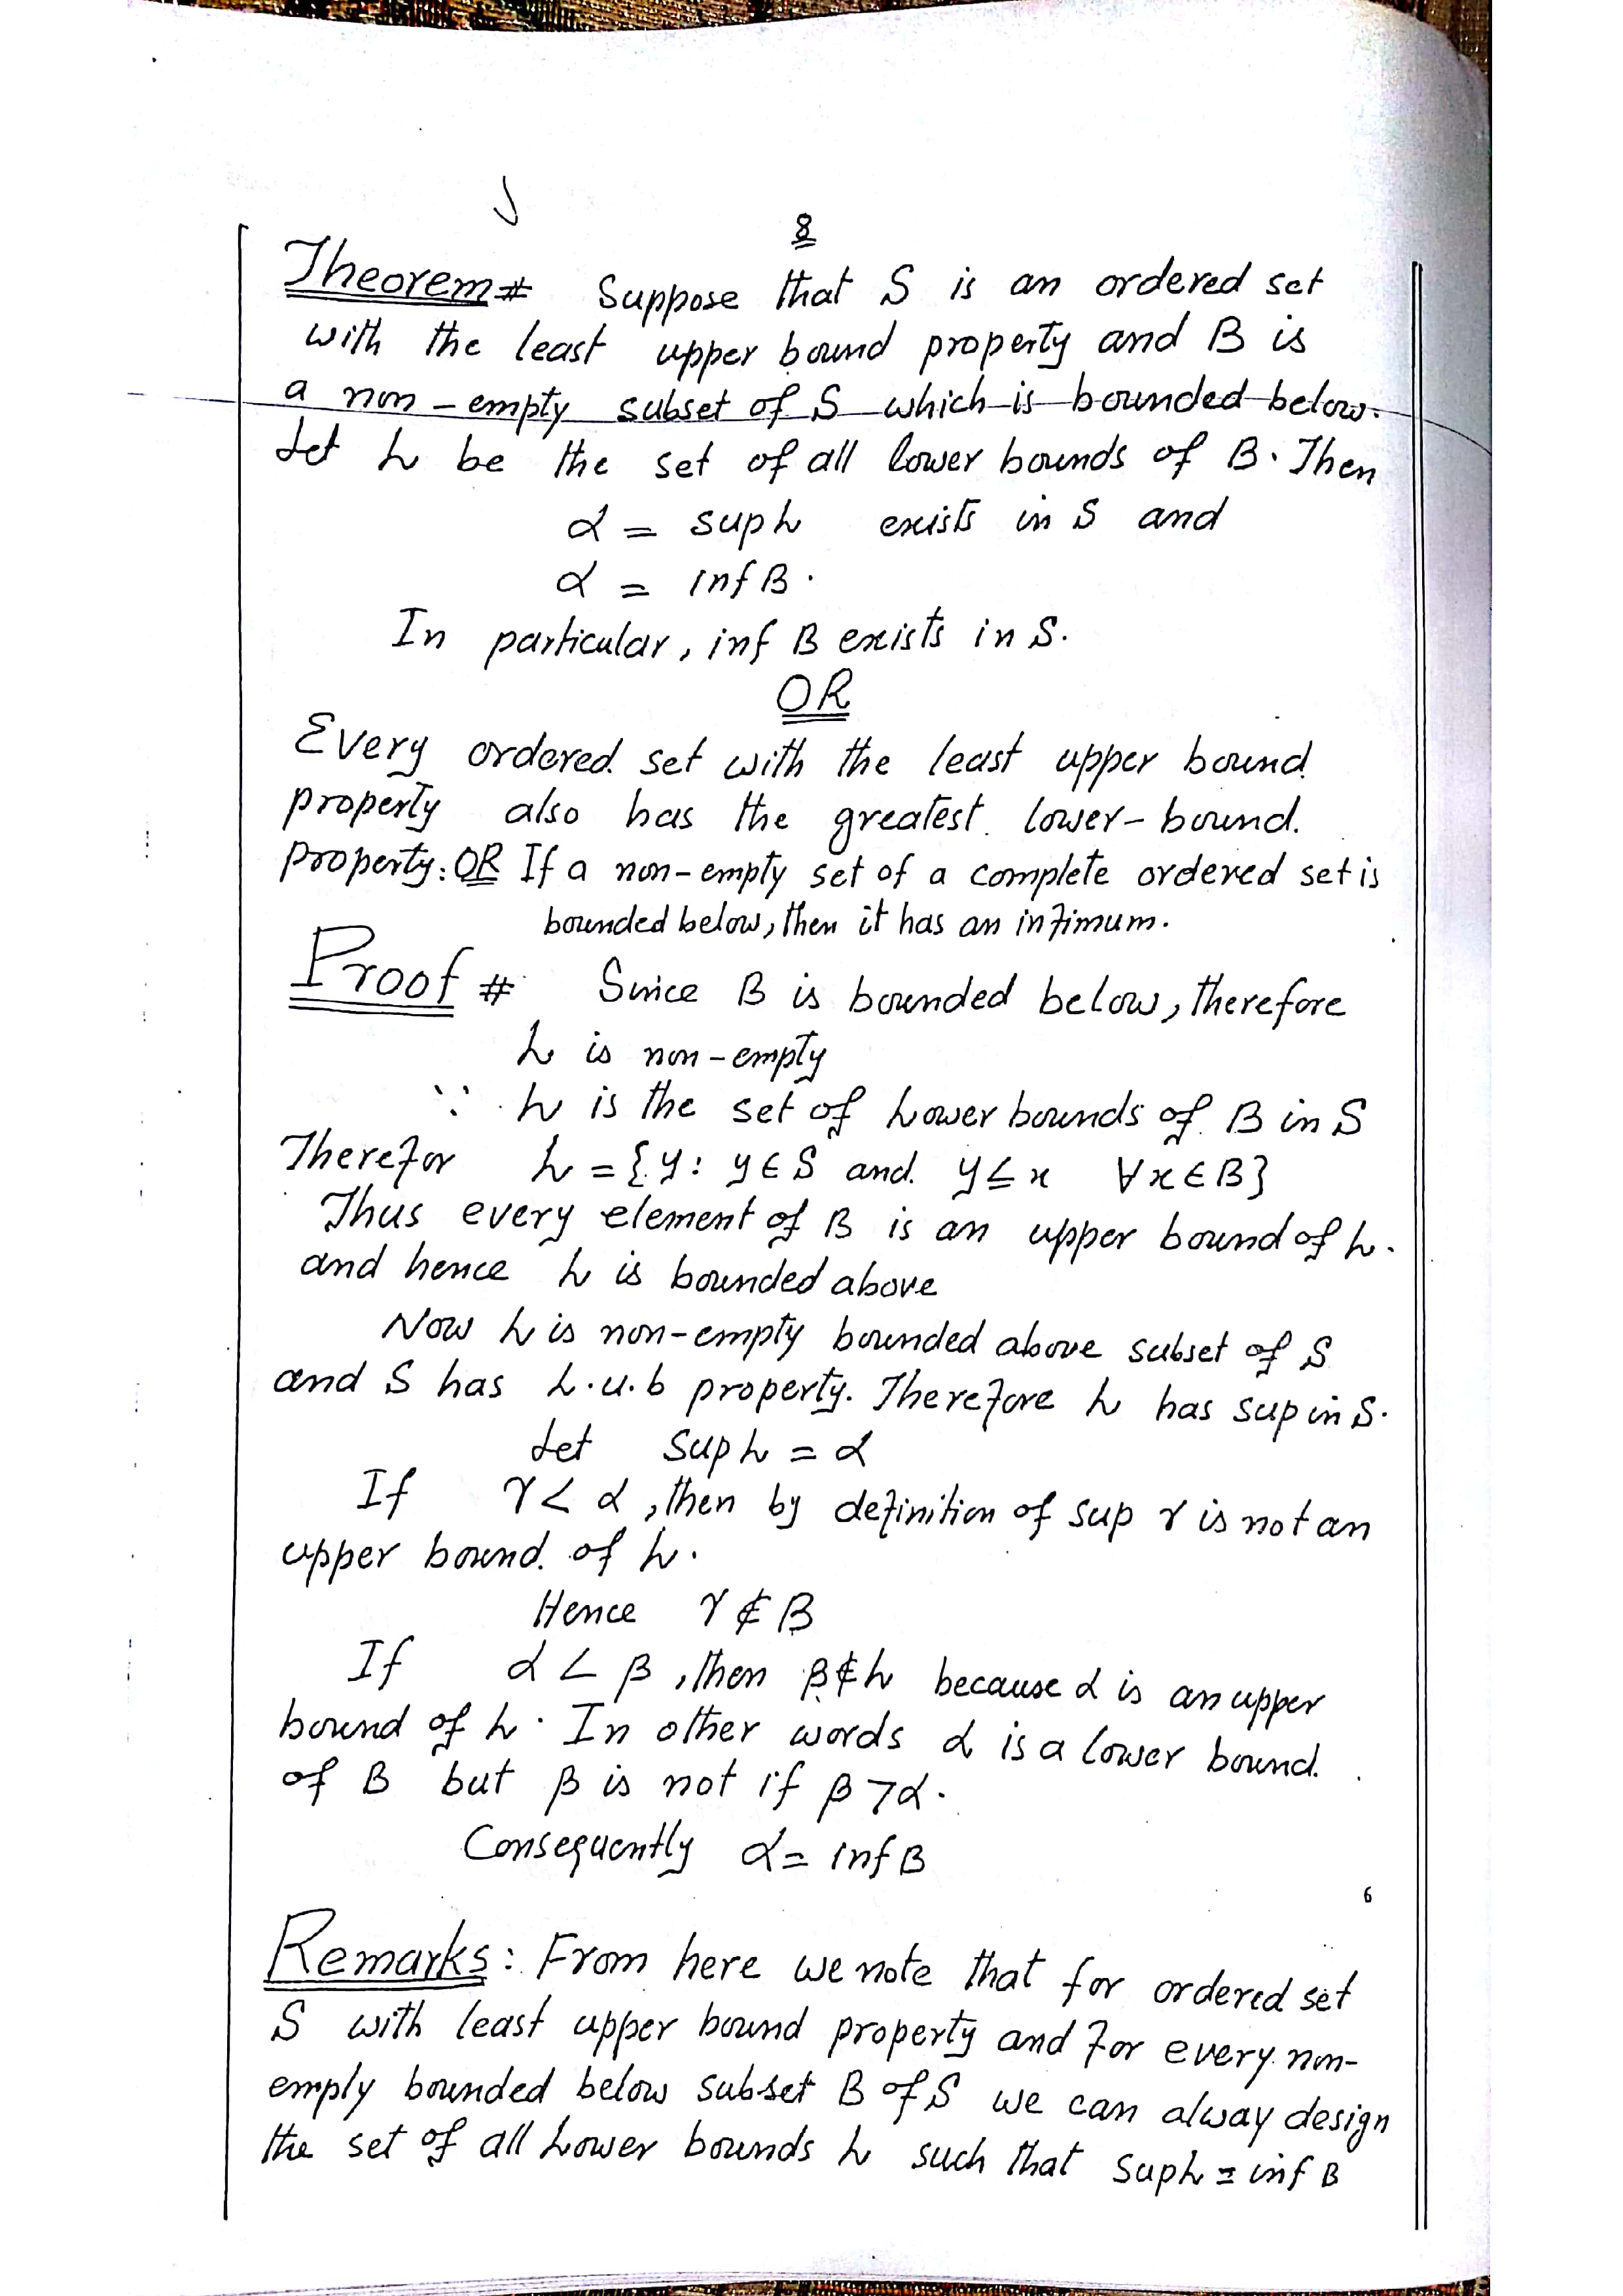 8
Theorem# Suppose that S is an ordered set
with the least upper bound property and B is
a non-empty subset of S which is bounded below.
Let L be the set of all lower bounds of B. Then
α = sup L exists in S and
α = inf B.
In particular, inf B exists in S.
OR
Every ordered set with the least upper bound
property also has the greatest lower-bound.
property. OR If a non-empty set of a complete ordered set is
bounded below, then it has an infimum.
Proof # Since B is bounded below, therefore
L is non-empty
∵ L is the set of Lower bounds of B in S
Therefor L = {y : y ∈ S and y ≤ x ∀ x ∈ B}
Thus every element of B is an upper bound of L.
and hence L is bounded above
Now L is non-empty bounded above subset of S
and S has L.u.b property. Therefore L has sup in S.
Let Sup L = α
If γ < α, then by definition of sup γ is not an
upper bound of L.
Hence γ ∉ B
If α < β, then β ∉ L because α is an upper
bound of L. In other words α is a lower bound
of B but β is not if β > α.
Consequently α = inf B
6
Remarks: From here we note that for ordered set
S with least upper bound property and for every non-
empty bounded below subset B of S we can alway design
the set of all Lower bounds L such that Sup L = inf B